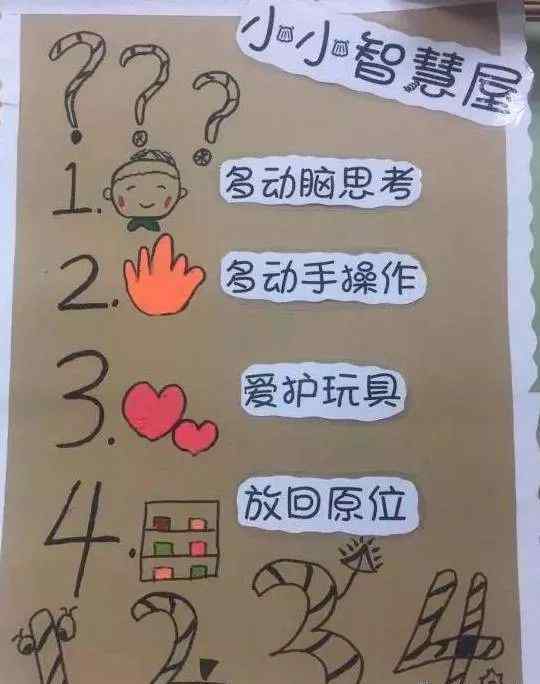 小小智慧屋
? ? ?
1. 多动脑思考
2. 多动手操作
3. 爱护玩具
4. 放回原位
1 2 3 4